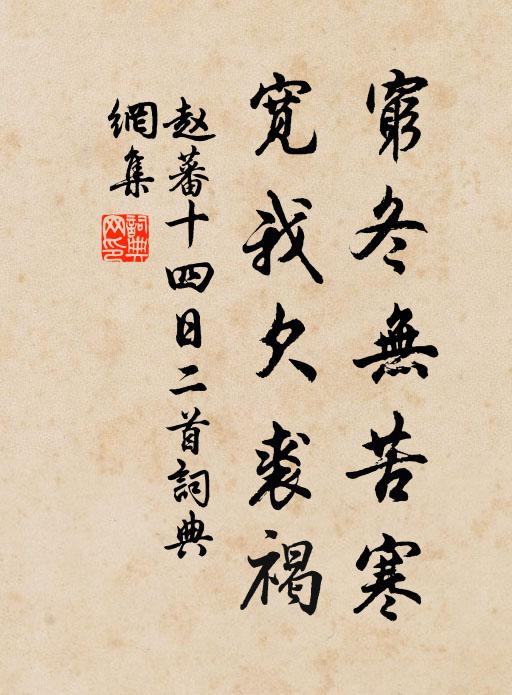 窮冬無苦寒
寬我欠裘褐
赵蕃十四日二首詞典
網集
詞典
网印